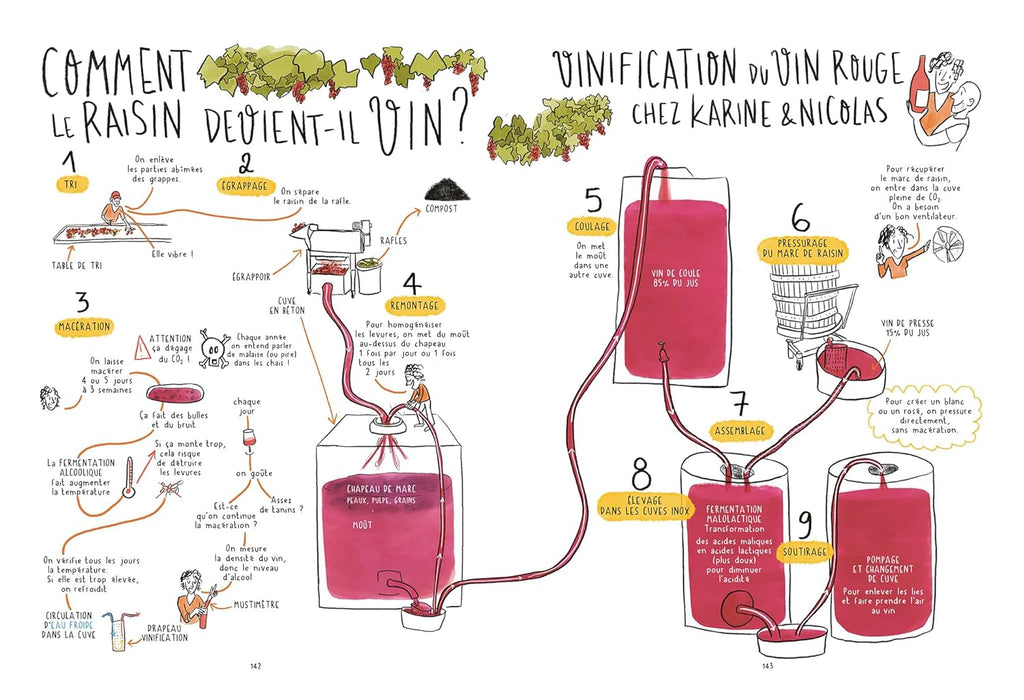 COMMENT
LE RAISIN DEVIENT-IL VIN ?
1
TRI
On enlève
les parties abîmées
des grappes.
Elle vibre !
TABLE DE TRI
2
ÉGRAPPAGE
On sépare
le raisin de la rafle.
COMPOST
RAFLES
ÉGRAPPOIR
CUVE
EN BÉTON
3
MACÉRATION
ATTENTION
ça dégage
du CO₂ !
Chaque année
on entend parler
de malaise (ou pire)
dans les chais !
On laisse
macérer
4 ou 5 jours
à 3 semaines
Ça fait des bulles
et du bruit
La FERMENTATION
ALCOOLIQUE
fait augmenter
la température
Si ça monte trop,
cela risque
de détruire
les levures
On vérifie tous les jours
la température.
Si elle est trop élevée,
on refroidit
CIRCULATION
D'EAU FROIDE
DANS LA CUVE
DRAPEAU
VINIFICATION
chaque
jour
on goûte
Est-ce
qu'on continue
la macération ?
Assez
de tanins ?
On mesure
la densité du vin,
donc le niveau
d'alcool
MUSTIMÈTRE
4
REMONTAGE
Pour homogénéiser
les levures, on met du moût
au-dessus du chapeau
1 fois par jour ou 1 fois
tous les
2 jours
CHAPEAU DE MARC
PEAUX, PULPE, GRAINS
MOÛT
142
VINIFICATION DU VIN ROUGE
CHEZ KARINE & NICOLAS
5
COULAGE
On met
le moût
dans une
autre cuve.
VIN DE COULE
85% DU JUS
6
PRESSURAGE
DU MARC DE RAISIN
Pour récupérer
le marc de raisin,
on entre dans la cuve
pleine de CO₂.
On a besoin
d'un bon ventilateur.
VIN DE PRESSE
15% DU JUS
Pour créer un blanc
ou un rosé, on pressure
directement,
sans macération.
7
ASSEMBLAGE
8
ÉLEVAGE
DANS LES CUVES INOX
FERMENTATION
MALOLACTIQUE
Transformation
des acides maliques
en acides lactiques
(plus doux)
pour diminuer
l'acidité
9
SOUTIRAGE
POMPAGE
ET CHANGEMENT
DE CUVE
Pour enlever les lies
et faire prendre l'air
au vin
143